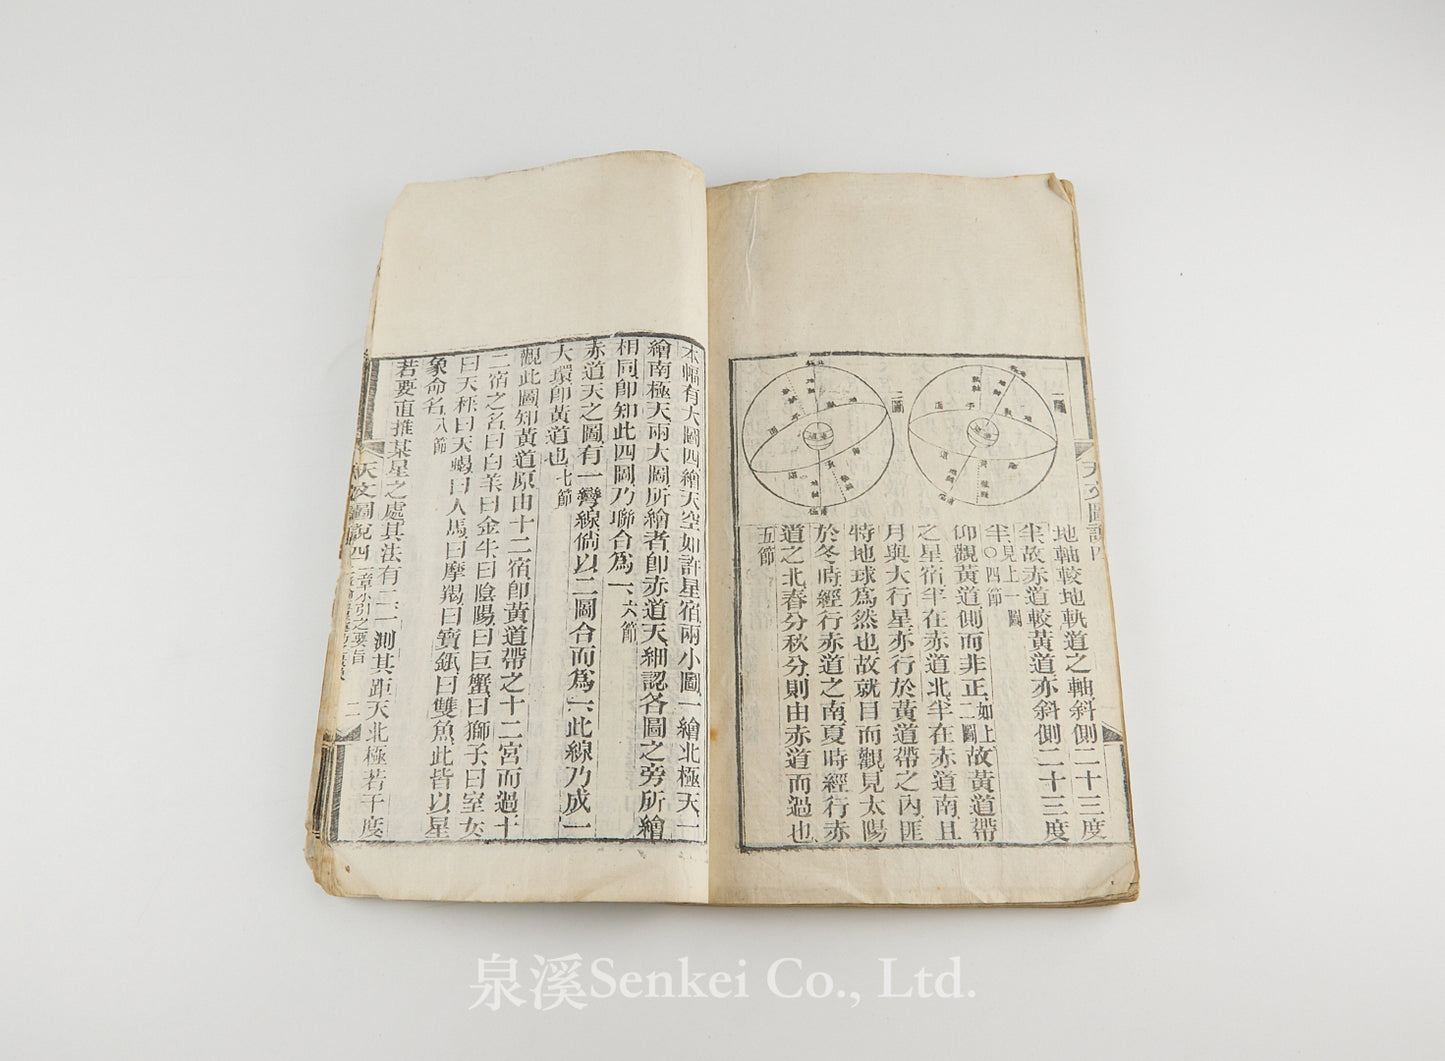 一圖
二圖
地軸較地軌道之軸斜側二十三度
半故赤道較黃道亦斜側二十三度
半見上一圖〇四節
仰觀黃道側而非正如上二圖故黃道帶
之星宿半在赤道北半在赤道南且
月與大行星亦行於黃道帶之內匪
特地球爲然也故就目而觀見太陽
於冬時經行赤道之南夏時經行赤
道之北春分秋分則由赤道而過也
五節
天文圖說四
本幅有大圖四繪天空如許星宿兩小圖一繪北極天一
繪南極天兩大圖所繪者卽赤道天細認各圖之旁所繪
相同卽知此四圖乃聯合爲一六節
赤道天之圖有一彎線倘以二圖合而爲一此線乃成一
大環卽黃道也七節
觀此圖知黃道原由十二宿卽黃道帶之十二宮而過十
二宿之名曰白羊曰金牛曰陰陽曰巨蟹曰獅子曰室女
曰天秤曰天蝎曰人馬曰摩羯曰寶缾曰雙魚此皆以星
象命名八節
若要直推某星之處其法有二一測其距天北極若干度
天文圖說四
二
泉溪Senkei Co., Ltd.